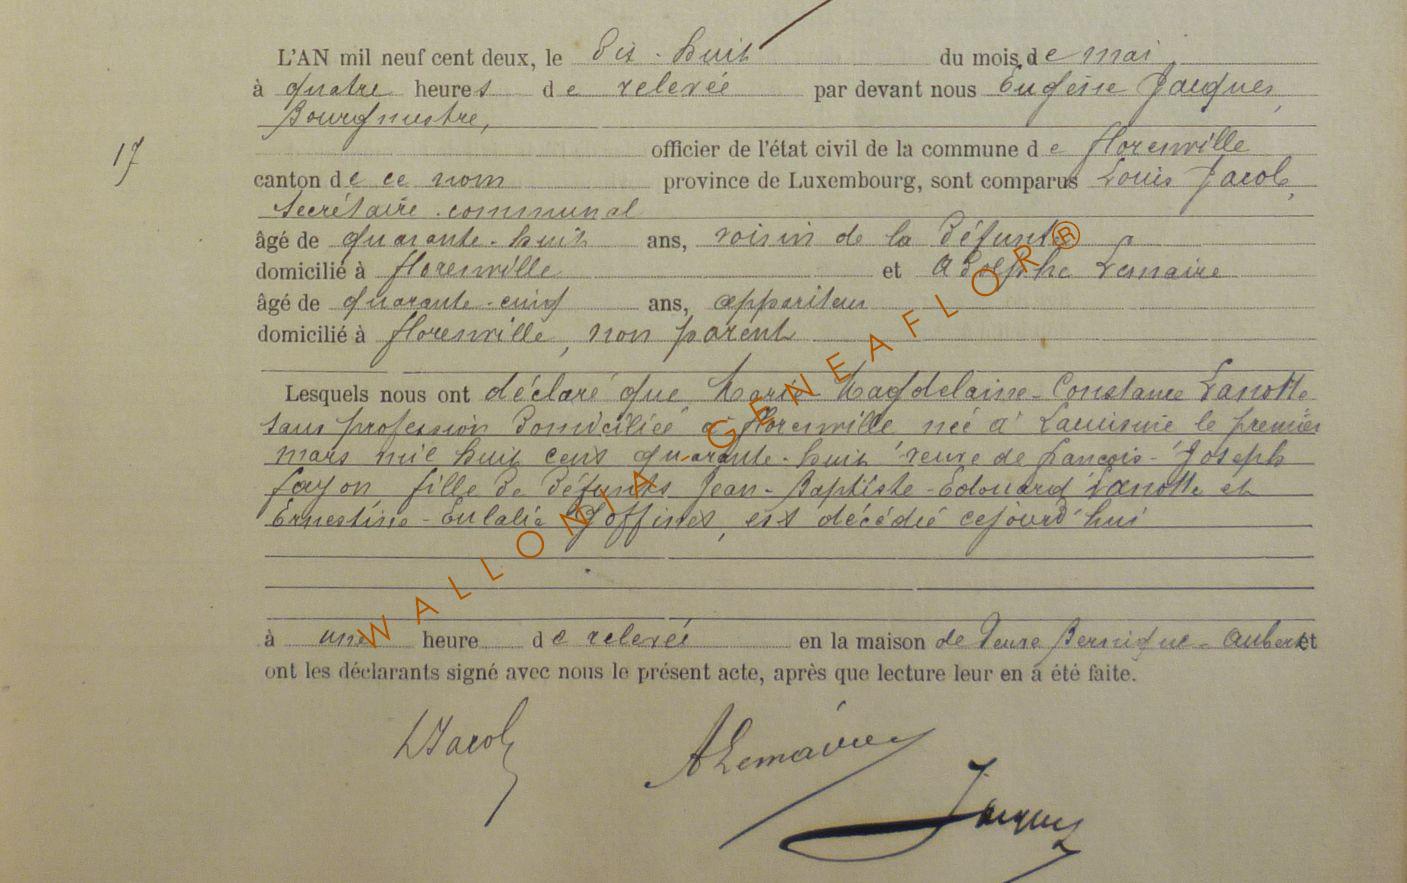 L'AN mil neuf cent deux, le Dix-huit du mois de mai
à quatre heures de relevée par devant nous Eugène Jacques,
Bourgmestre,
officier de l'état civil de la commune de Florenville
17
canton de ce nom province de Luxembourg, sont comparus Louis Jacob,
secrétaire communal
âgé de quarante-huit ans, voisin de la défunte
domicilié à Florenville et Adolphe Lemaire
âgé de quarante-cinq ans, appariteur
domicilié à Florenville, non parent
Lesquels nous ont déclaré que Marie-Magdelaine-Constance Lanotte
sans profession domiciliée à Florenville née à Lacuisine le premier
mars mil huit cent quarante-huit veuve de François-Joseph
Fayon, fille de défunts Jean-Baptiste-Edouard Lanotte et
Ernestine-Eulalie Goffinet, est décédée cejourd'hui
à une heure de relevée en la maison de Veuve Bernique-Aubert et
ont les déclarants signé avec nous le présent acte, après que lecture leur en a été faite.
LJacob ALemaire
Jacques
WALLONIA GENEAFLOR®